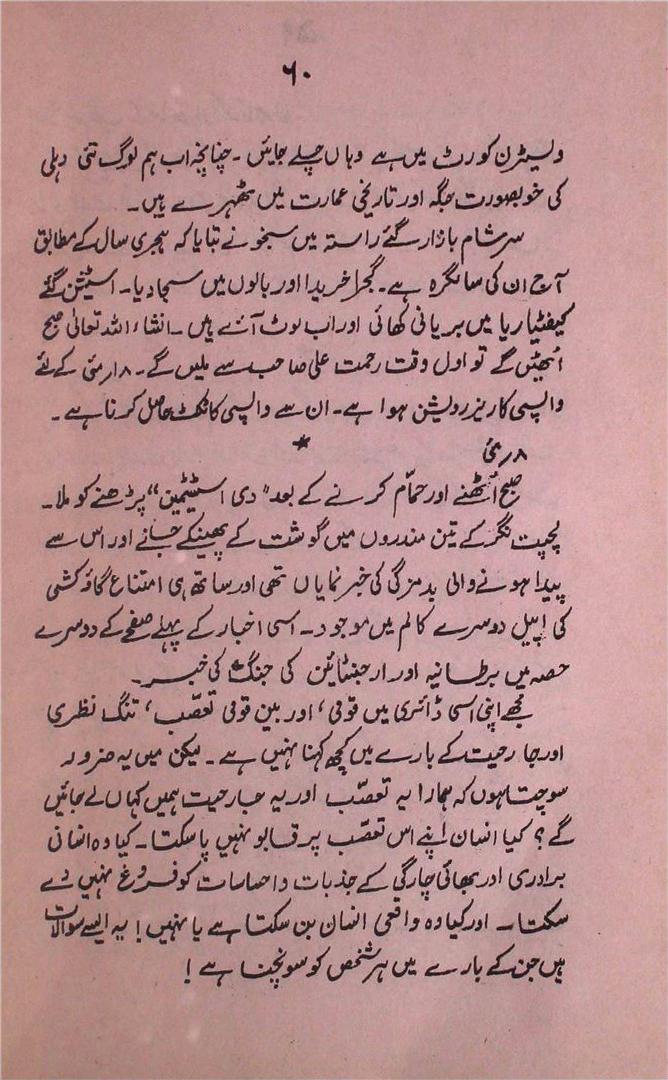 ۶۰
ویسٹرن کورٹ میں ہے وہاں چلے جائیں ۔ چنانچہ اب ہم لوگ نئی دہلی
کی خوبصورت جگہ اور تاریخی عمارت میں ٹھہرے ہیں ۔
سر شام بازار گئے راستہ میں سنجو نے بتایا کہ ہجری سال کے مطابق
آج ان کی سالگرہ ہے ۔ گجرا خریدا اور بالوں میں سجا دیا ۔ اسٹیشن گئے
کیفٹیاریا میں بریانی کھائی اور اب لوٹ آئے ہیں ۔ انشاء اللہ تعالیٰ صبح
اٹھیں گے تو اول وقت رحمت علی صاحب سے ملیں گے ۔ ۱۸ مئی کے لئے
واپسی کا ریزرویشن ہوا ہے ۔ ان سے واپسی کا ٹکٹ حاصل کرنا ہے ۔
*
۸؍ مئی
صبح اُٹھنے اور حمّام کرنے کے بعد " دی اسٹیٹمین " پڑھنے کو ملا ۔
لچپت نگر کے تین مندروں میں گوشت کے پھینکے جانے اور اس سے
پیدا ہونے والی بدمزگی کی خبر نمایاں تھی اور ساتھ ہی امتناع گاؤ کشی
کی اپیل دوسرے کالم میں موجود ۔ اسی اخبار کے پہلے صفحے کے دوسرے
حصہ میں برطانیہ اور ارجنٹائین کی جنگ کی خبر ۔
مجھے اپنی اسی ڈائری میں قومی ، اور بین قومی تعصّب ، تنگ نظری
اور جارحیت کے بارے میں کچھ کہنا نہیں ہے ۔ لیکن میں یہ ضرور
سوچتا ہوں کہ ہمارا یہ تعصّب اور یہ جارحیت ہمیں کہاں لے جائیں
گے ؟ کیا انسان اپنے اس تعصّب پر قابو نہیں پا سکتا ۔ کیا وہ انسانی
برادری اور بھائی چارگی کے جذبات و احساسات کو فروغ نہیں دے
سکتا ۔ اور کیا وہ واقعی انسان بن سکتا ہے یا نہیں ! یہ ایسے سوالات
ہیں جن کے بارے میں ہر شخص کو سونچنا ہے !